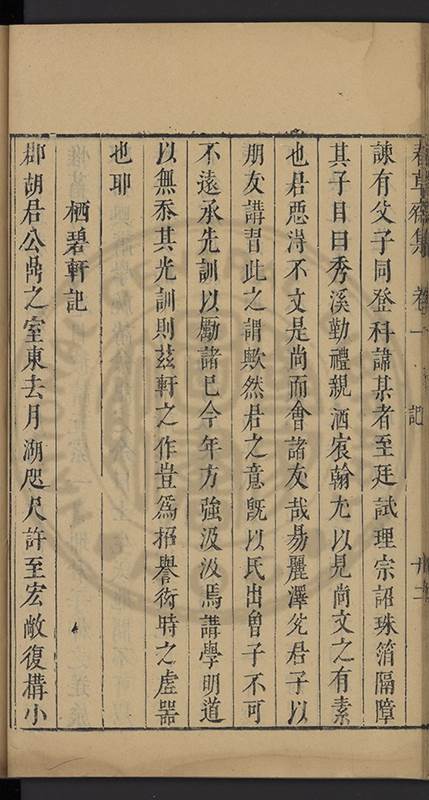 春草齋集 卷一 記
諫有父子同登科諱某者至廷試理宗詔珠箔隔障
其子目曰秀溪勤禮親洒宸翰尤以見尚文之有素
也君惡淂不文是尚而會諸友哉昜麗澤兊君子以
朋友講習此之謂歟然君之意旣以氏出曾子不可
不遠承先訓以勵諸已今年方強汲汲焉講學明道
以無忝其光訓則茲軒之作豈爲招譽衒時之虛器
也耶
栖碧軒記
郡胡君公鼎之室東去月湖咫尺許至宏敞復構小